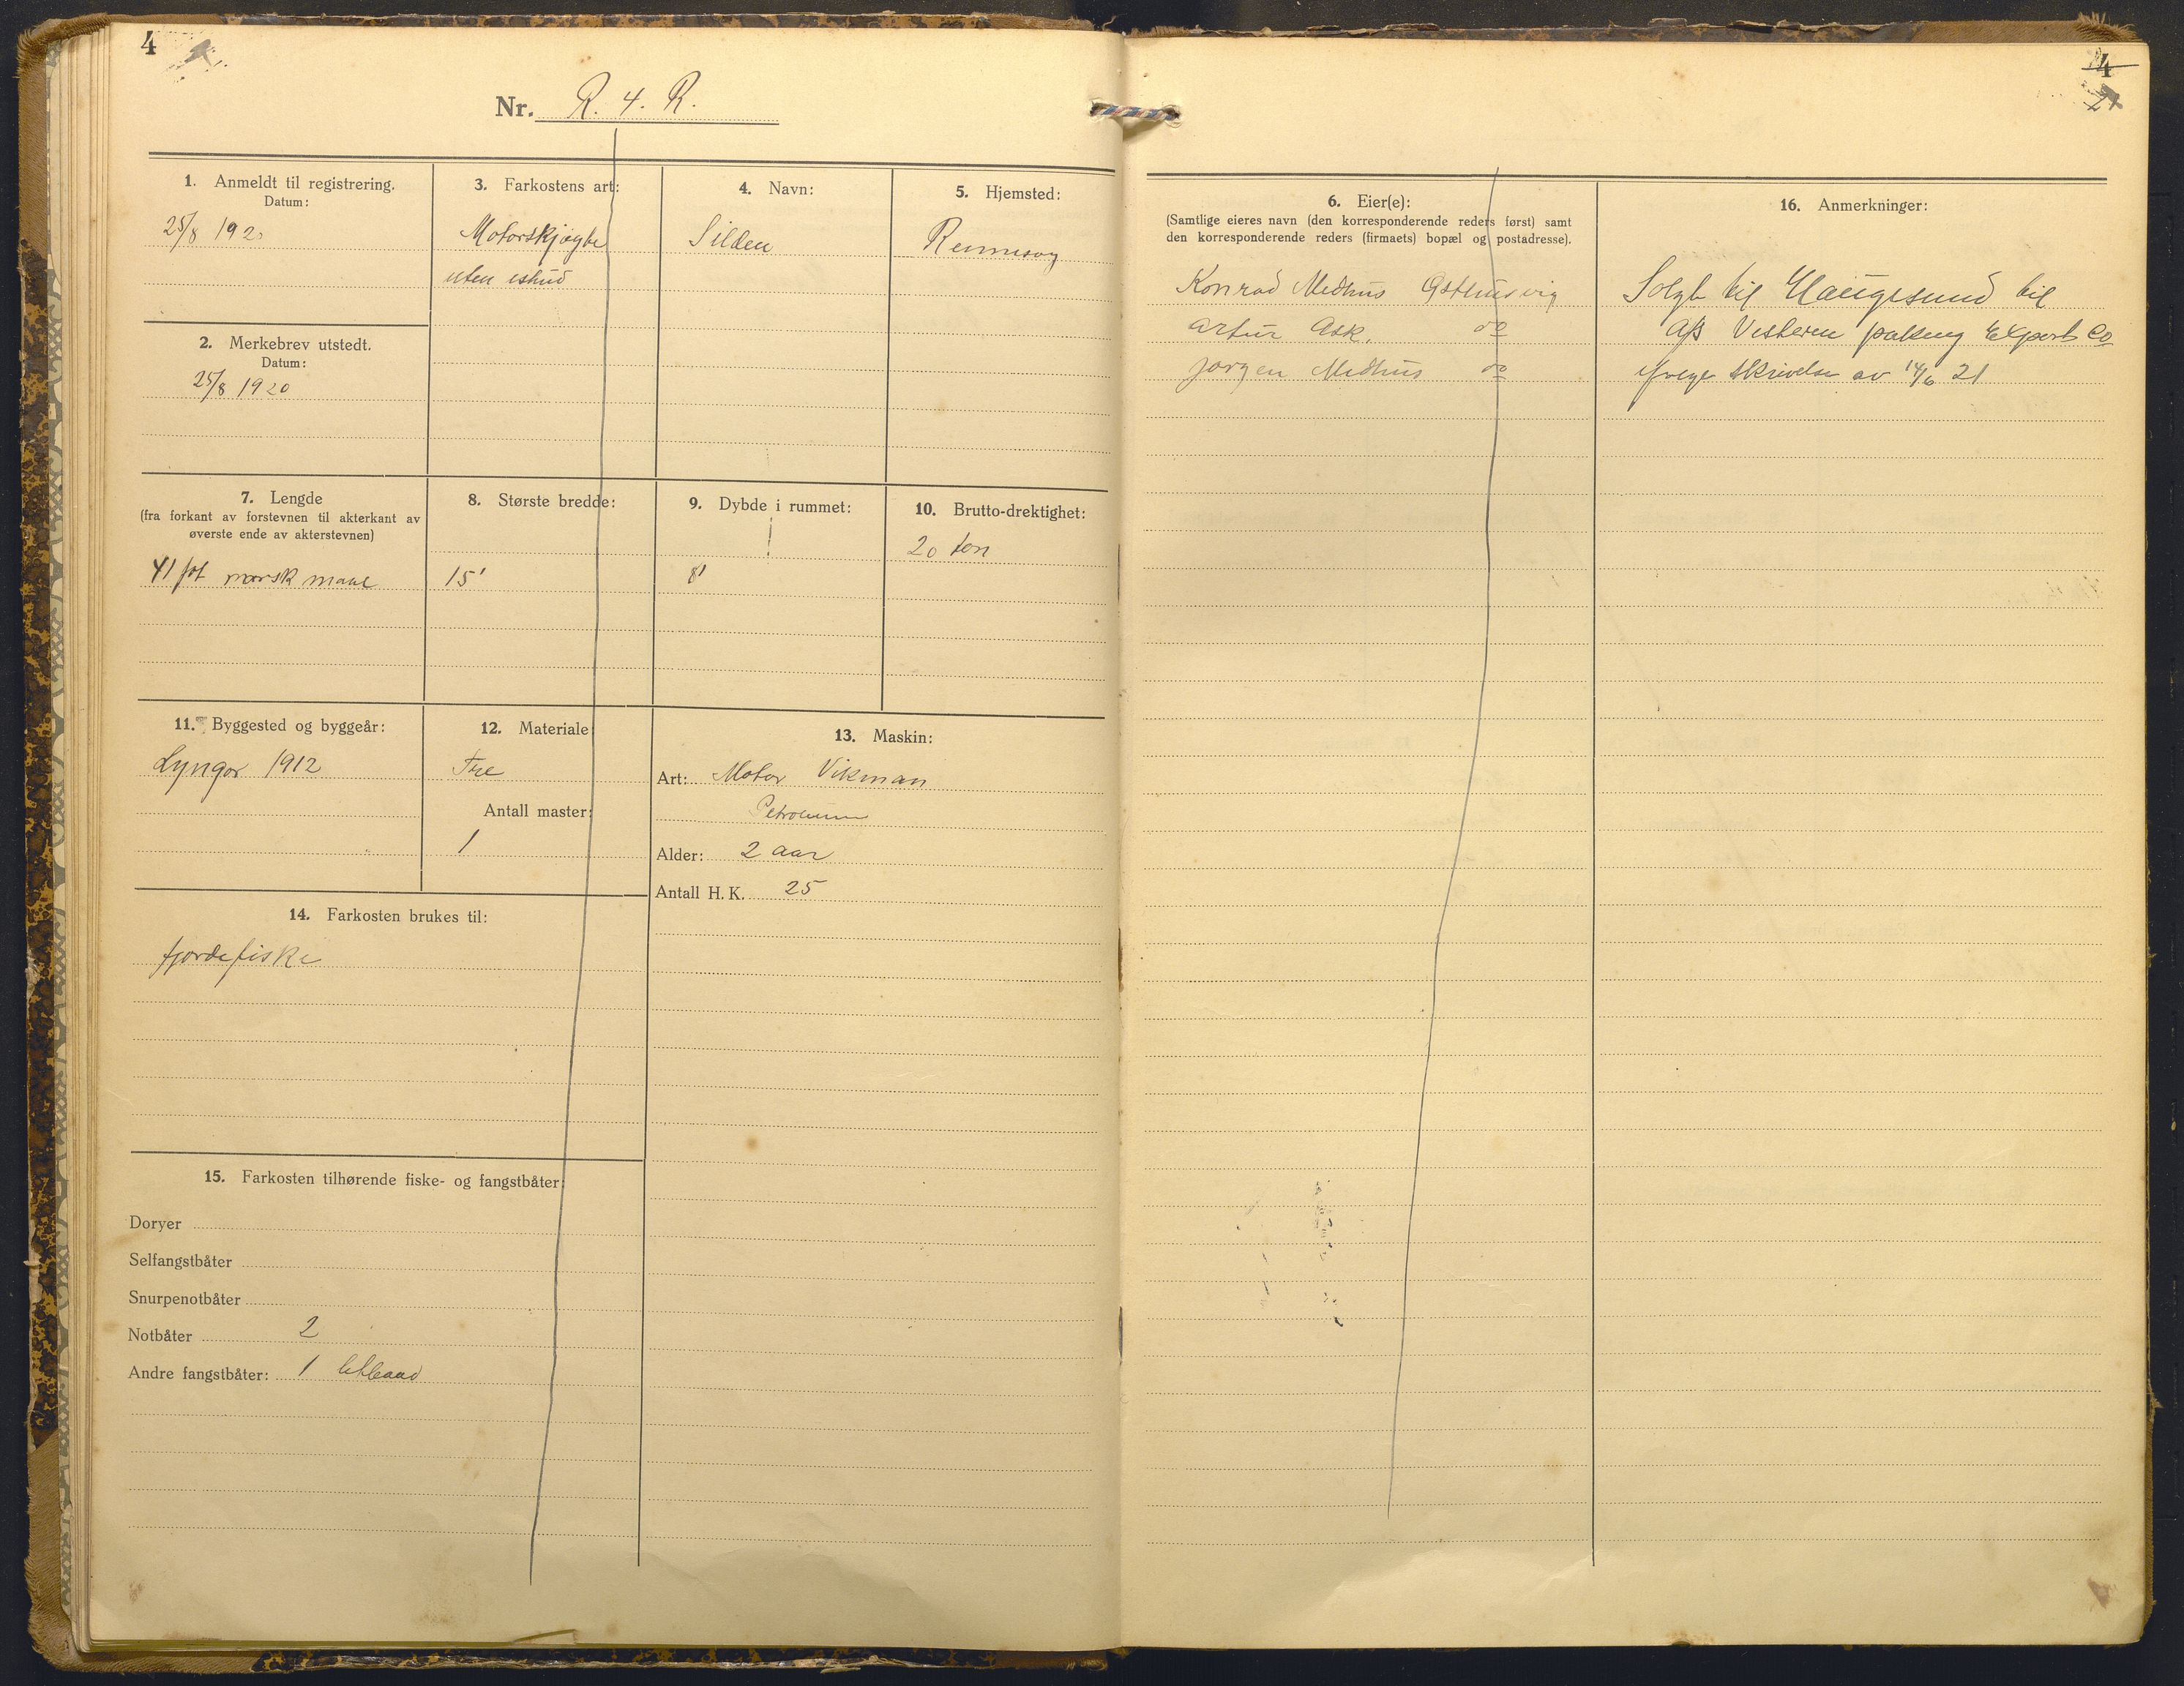 4
Nr. R. 4. R.
1. Anmeldt til registrering.
Datum:
25/8 192
2. Merkebrev utstedt.
Datum:
25/8 1920
3. Farkostens art:
Motorskjøyte
uten ishud
4. Navn:
Silden
5. Hjemsted:
Rennesøy
7. Lengde
(fra forkant av forstevnen til akterkant av
øverste ende av akterstevnen)
41 fot norsk maal
8. Største bredde:
15'
9. Dybde i rummet:
8'
10. Brutto-drektighet:
20 ton
11. Byggested og byggeår:
Lyngør 1912
12. Materiale:
Tre
Antall master:
1
13. Maskin:
Art: Motor Vikman
Petroleum
Alder: 2 aar
Antall H. K. 25
14. Farkosten brukes til:
fjordefiske
15. Farkosten tilhørende fiske- og fangstbåter:
Doryer
Selfangstbåter
Snurpenotbåter
Notbåter 2
Andre fangstbåter: 1 letbaad
4
2
6. Eier(e):
(Samtlige eieres navn (den korresponderende reders først) samt
den korresponderende reders (firmaets) bopæl og postadresse).
Konrad Medhus Østhusvig
Artur Ask. do
Jørgen Medhus do
16. Anmerkninger:
Solgt til Haugesund til
A/S Vesteren paking Export Co
ifølge skrivelse av 14/6 21